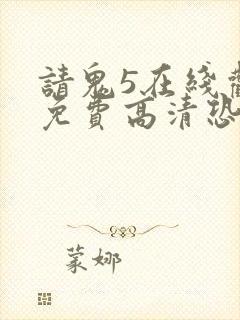 請鬼5在綫
免費高清恐
蒙娜